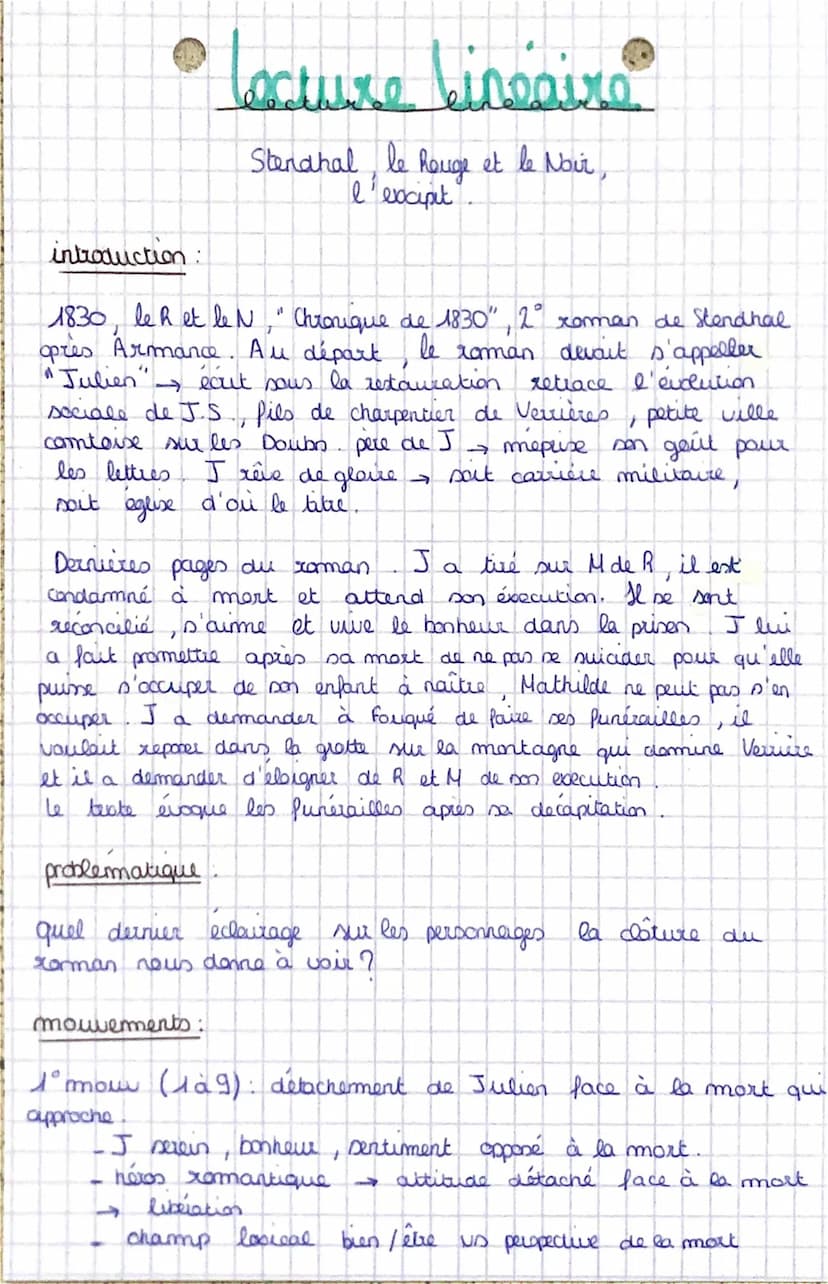 lecture linéaire
lecture linéaire
Stendhal, le Rouge et le Noir,
l'excipit.
introduction :
1830, le R et le N, "Chronique de 1830", 2° roman de Stendhal
après Armance. Au départ, le roman devait s'appeller
"Julien" → écrit sous la restauration retrace l'évolution
sociale de J.S., fils de charpentier de Verrières, petite ville
comtoise sur les Doubs. père de J → méprise son goût pour
les lettres. J rêve de gloire → soit carrière militaire,
soit église d'où le titre.
Dernières pages du roman. J a tiré sur M de R, il est
condamné à mort et attend son éxecution. Il se sont
réconcilié, s'aime et vive le bonheur dans la prison. J lui
a fait promettre après sa mort de ne pas se suicider pour qu'elle
puisse s'occuper de son enfant à naître, Mathilde ne peut pas s'en
occuper. J a demander à Fouqué de faire ses funérailles, il
voulait reposer dans la grotte sur la montagne qui domine Verrière
et il a demander d'éloigner de R et M de son execution.
Le texte évoque les funérailles après sa decapitation.
problématique :
quel dernier éclairage sur les personnages la clôture du
roman nous donne à voir ?
mouvements :
1° mouv (1à9) : détachement de Julien face à la mort qui
approche.
- J serein, bonheur, sentiment opposé à la mort.
- héros romantique → attitude détaché face à la mort
→ libération
- champ lexical bien/être vs perspective de la mort